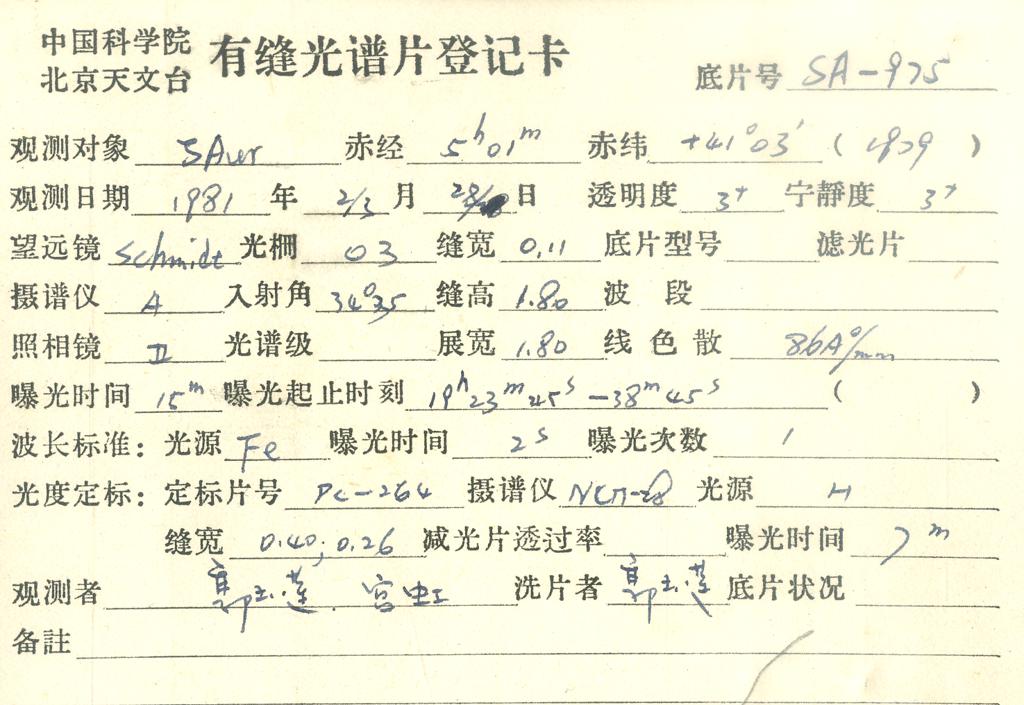 中国科学院
北京天文台
有缝光谱片登记卡
底片号 SA-975
观测对象 SAur 赤经 5h01m 赤纬 +41°03′ ( )
观测日期 1981 年 2/3 月 28/ 日 透明度 3+ 宁静度 3+
望远镜 Schmidt 光栅 03 缝宽 0.11 底片型号 滤光片
摄谱仪 A 入射角 34°35 缝高 1.80 波段
照相镜 II 光谱级 展宽 1.80 线色散 86A°/mm
曝光时间 15m 曝光起止时刻 19h23m45s-38m45s ( )
波长标准: 光源 Fe 曝光时间 2s 曝光次数 1
光度定标: 定标片号 PC-264 摄谱仪 光源 H
缝宽 0.40;0.26 减光片透过率 曝光时间 7m
观测者 郭玉莲. 宫虹 洗片者 郭玉莲 底片状况
备註